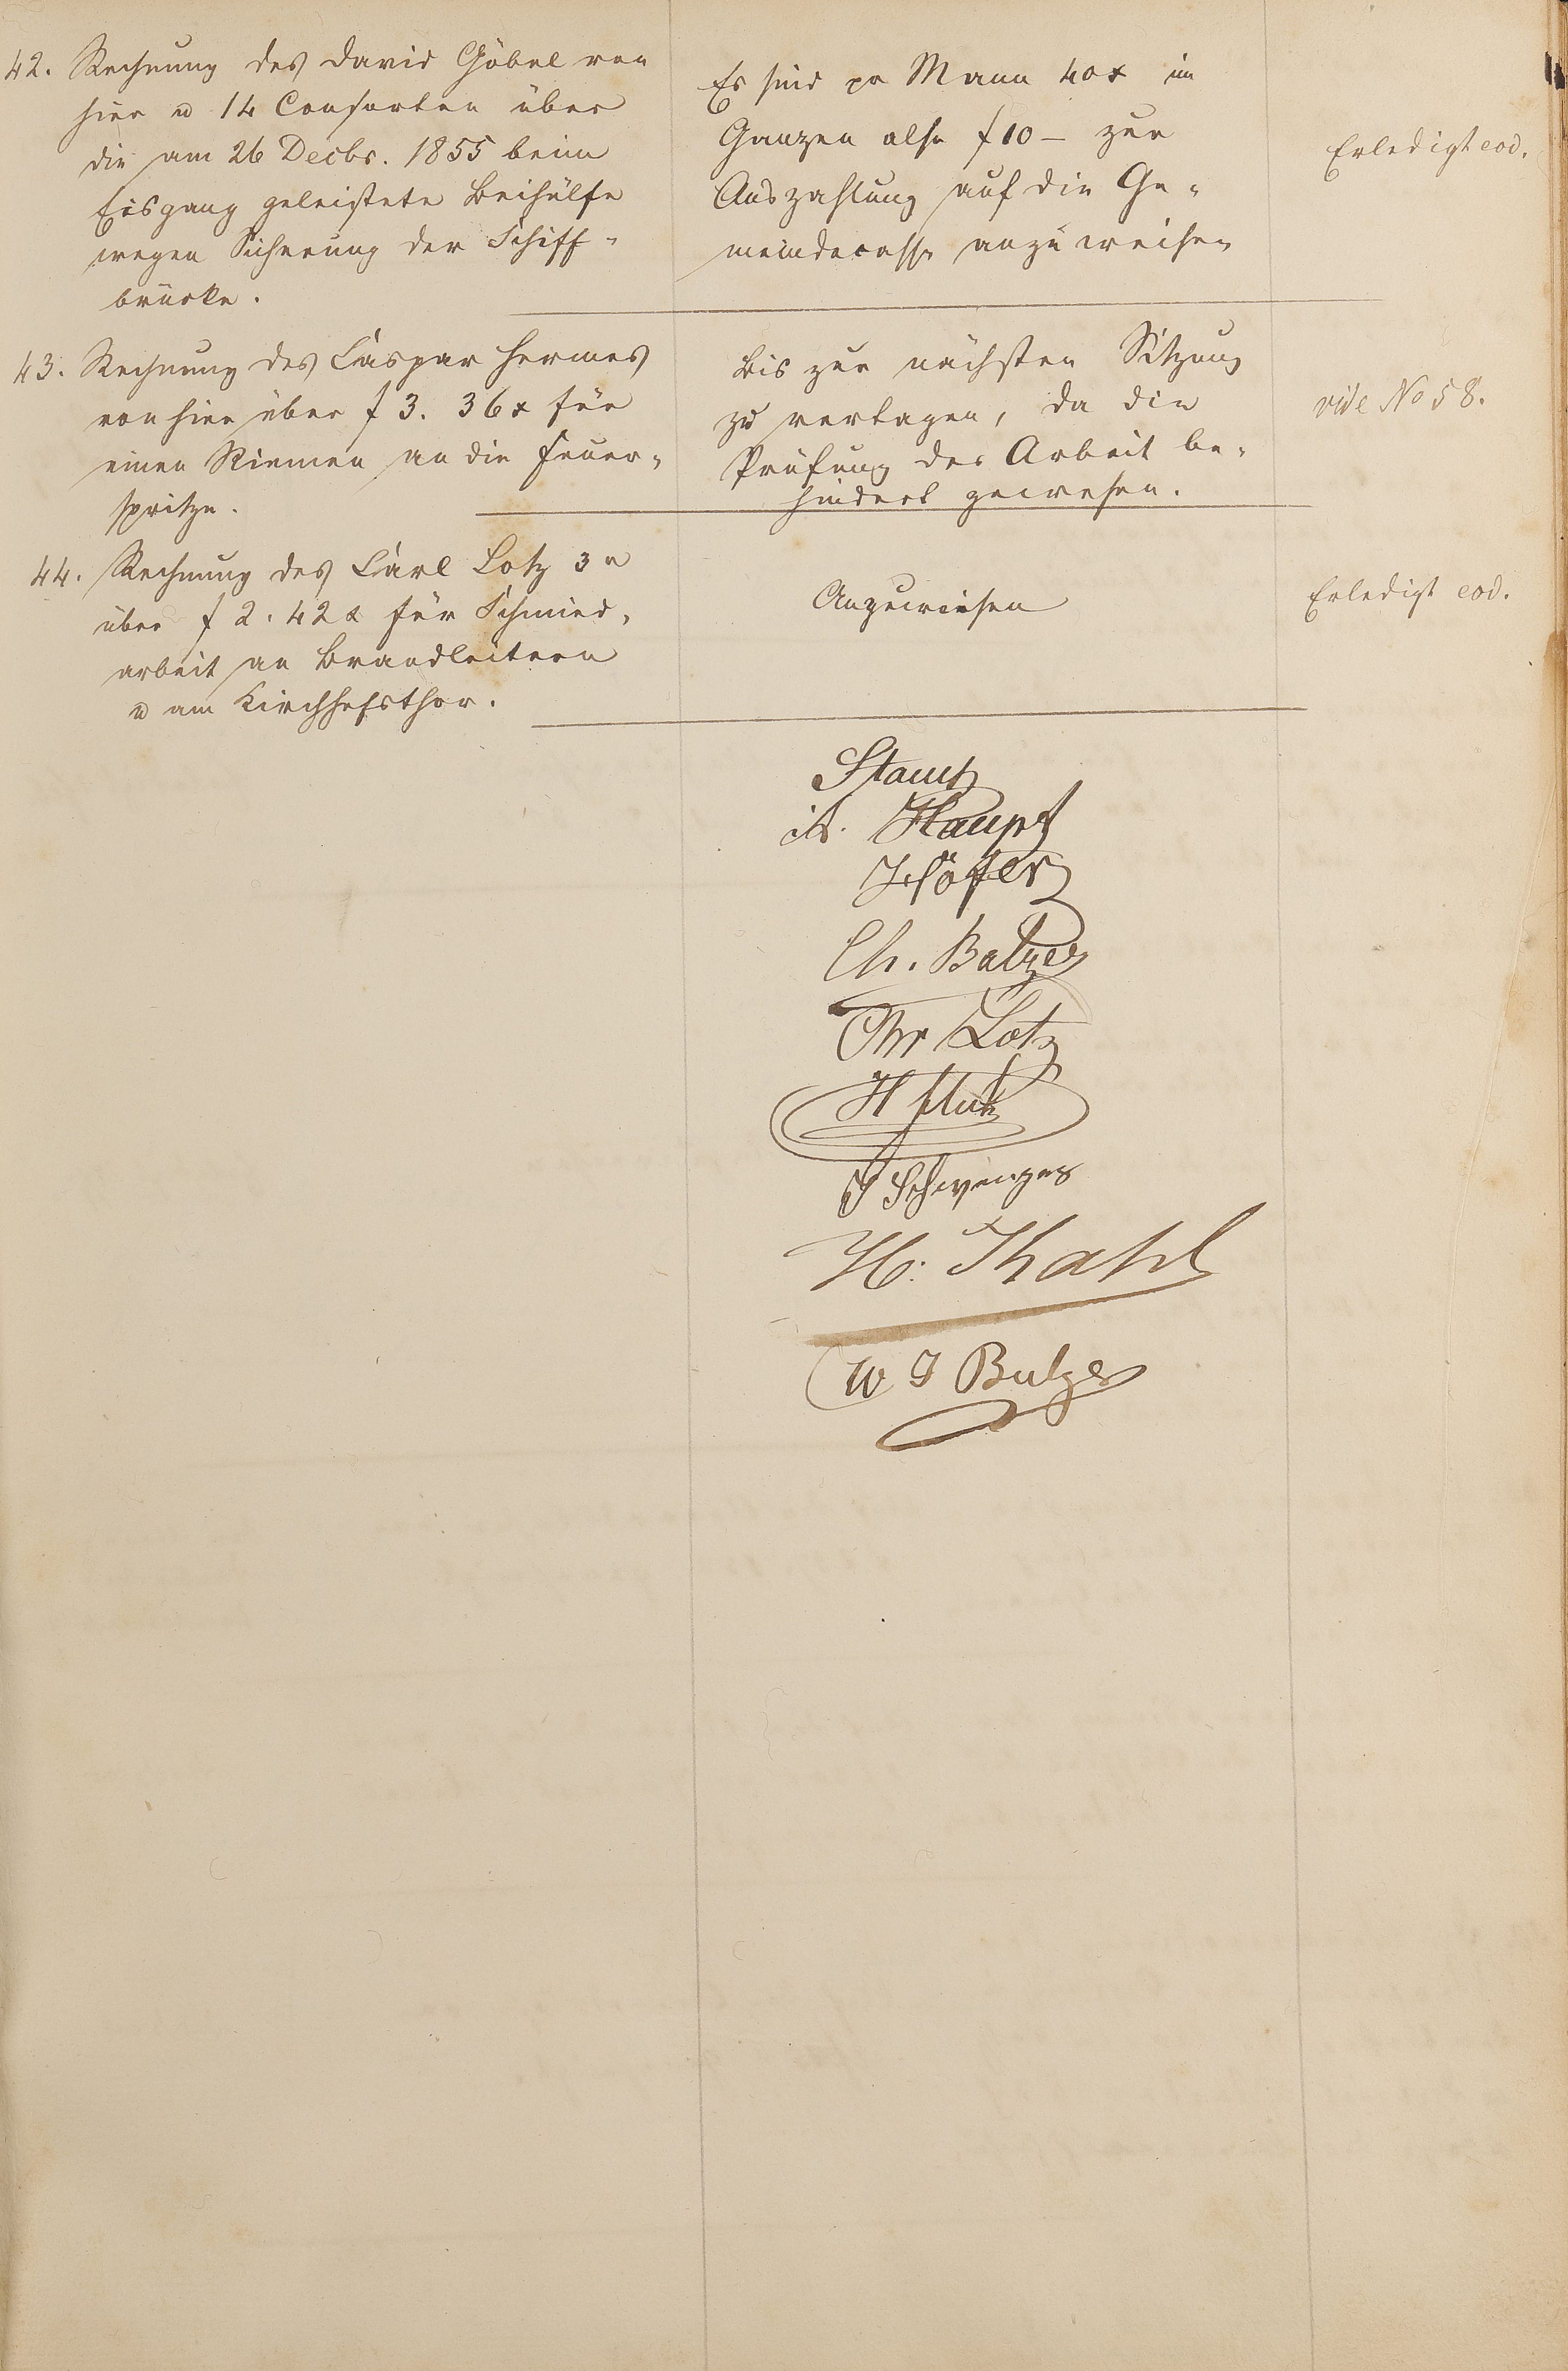 42. Rechnung des David Göbel von
hier u 14 Consorten über
die am 26 Decbr. 1855 beim
Eisgang geleistete Beihülfe
wegen Sicherung der Schiff-
brücke.
Es sind pr Mann 40x im
Ganzen also f 10 – zur
Auszahlung auf die Ge-
meindecasse anzuweisen
Erledigt eod.
43. Rechnung des Caspar Hermes
von hier über f 3. 36x für
einen Riemen an die Feuer-
spritze.
Bis zur nächsten Sitzung
zu vertagen, da die
Prüfung der Arbeit be-
hindert gewesen.
vide No 58.
44. Rechnung des Carl Lotz 3r
über f 2. 42x für Schmied-
arbeit an Brandleitern
u am Kirchhofsthor.
Anzuweisen
Erledigt eod.
Haupt
Höfer
Ch. Balzer
Chr Lotz
H
J Schwenzer
H: Thahl
W J Balzer